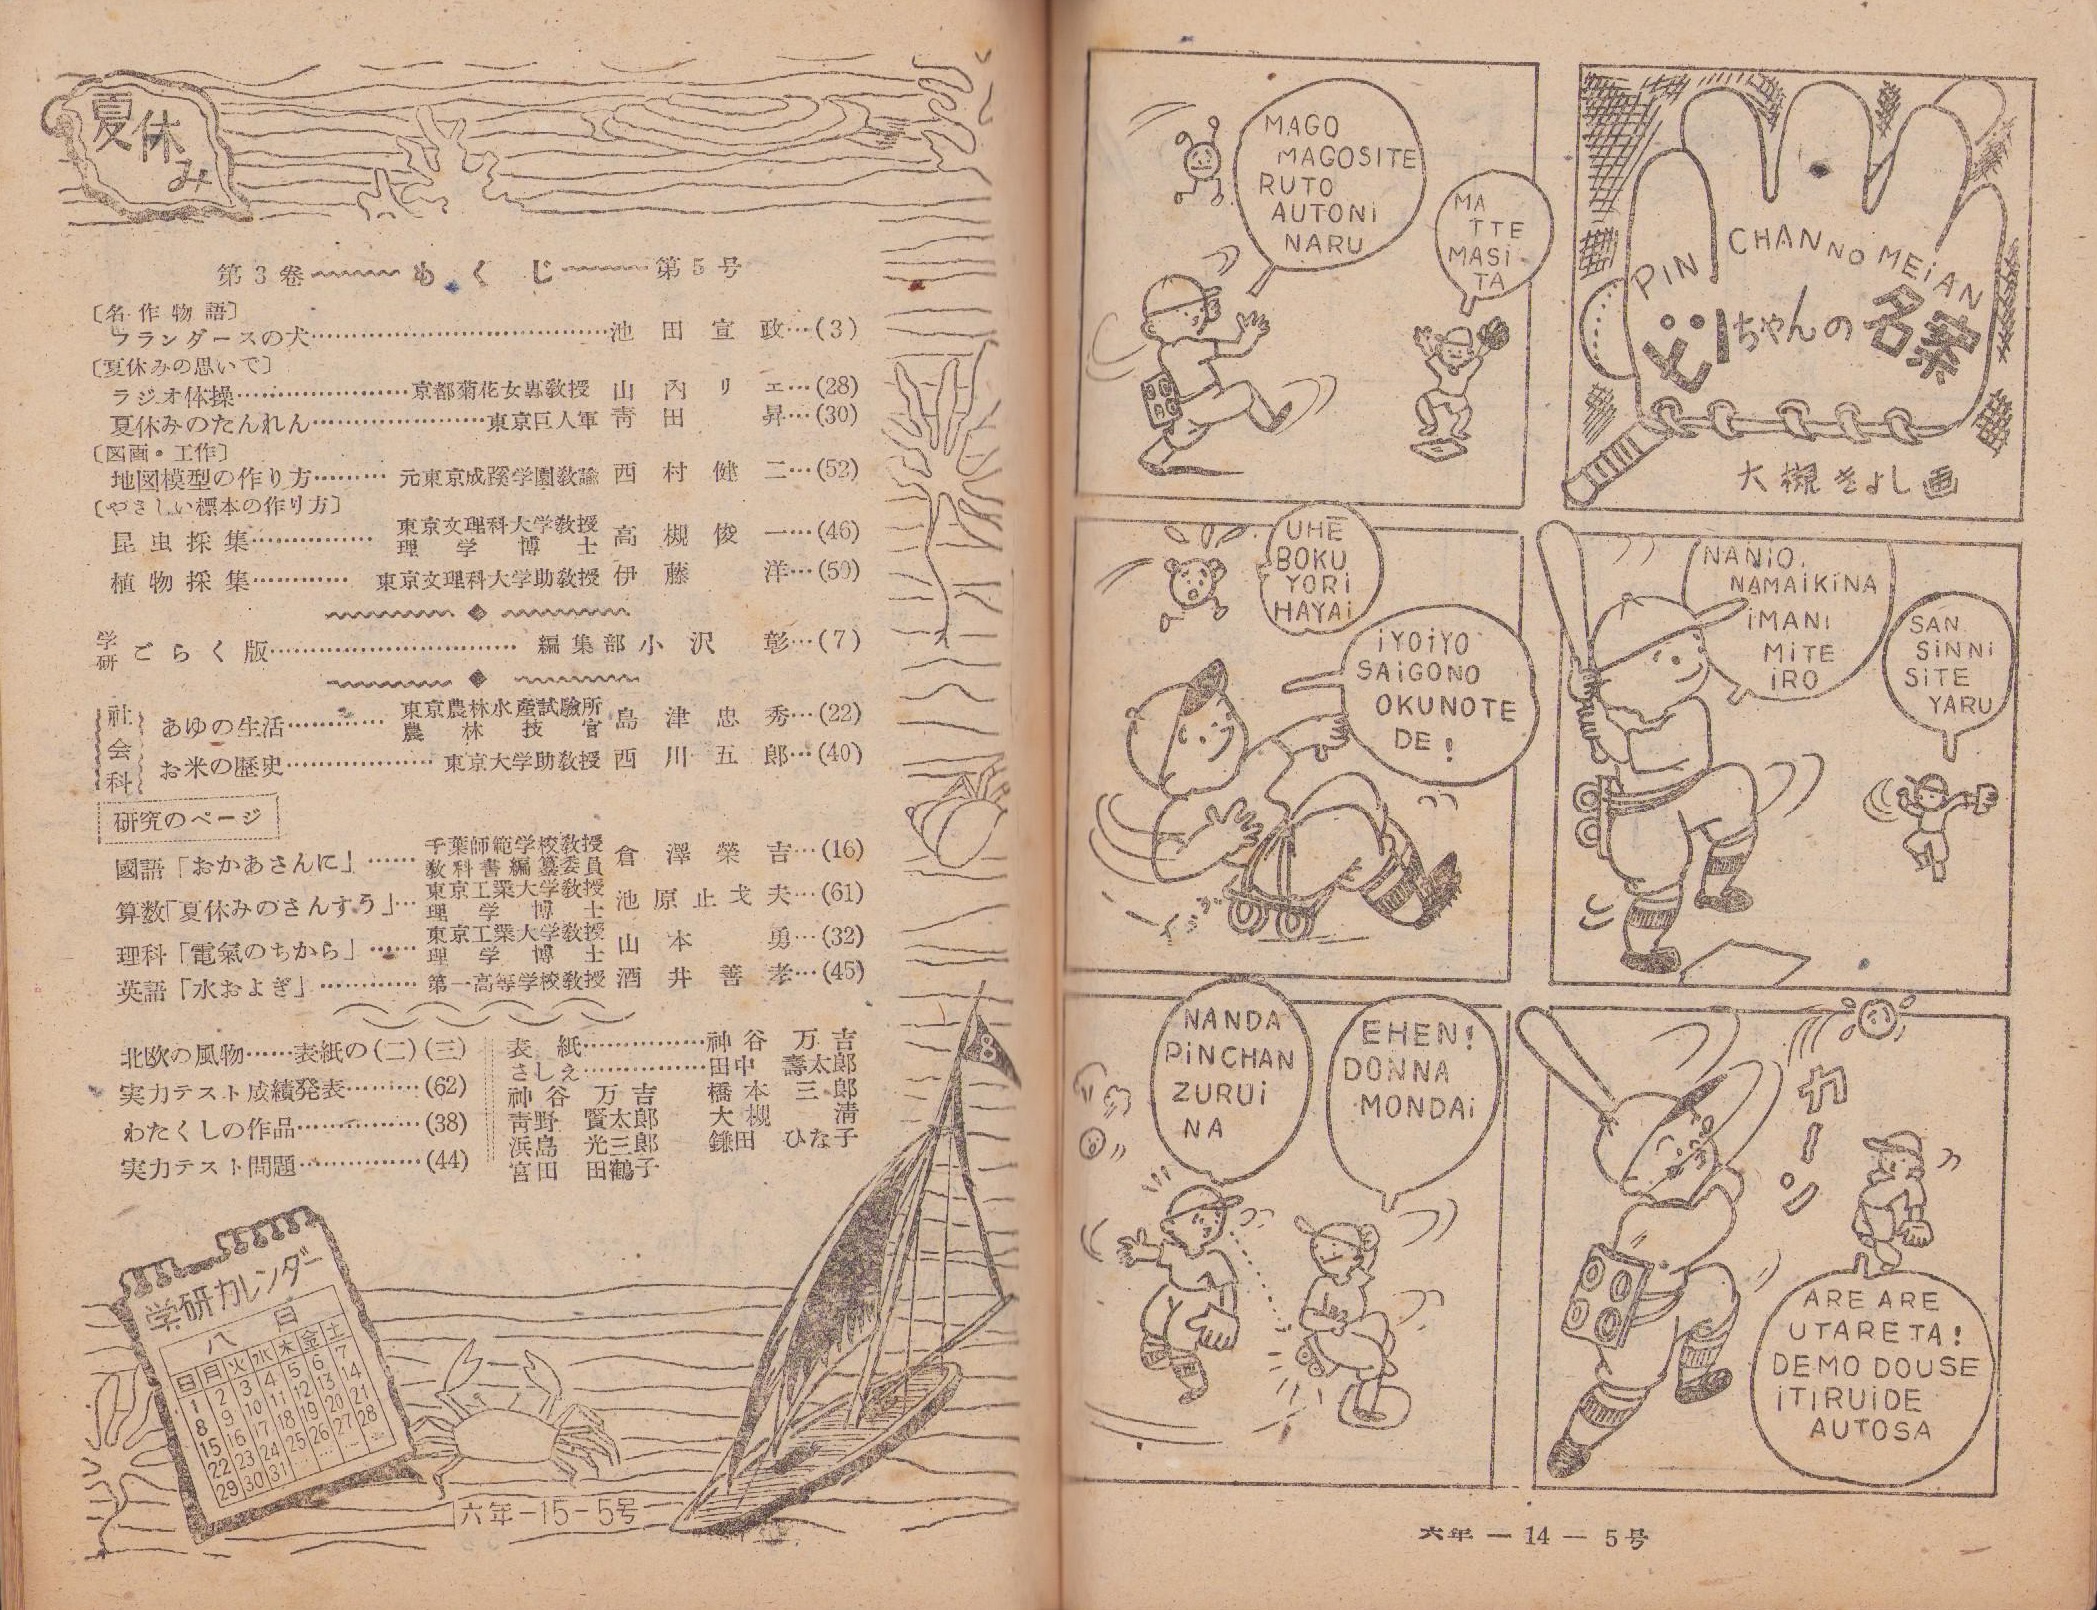 夏休み
第3巻 もくじ 第5号
〔名作物語〕
フランダースの犬……池田宣政…(3)
〔夏休みの思いで〕
ラジオ体操……京都菊花女専教授 山内リエ…(28)
夏休みのたんれん……東京巨人軍 青田昇…(30)
〔図画・工作〕
地図模型の作り方……元東京成蹊学園教諭 西村健二…(52)
〔やさしい標本の作り方〕
昆虫採集……東京文理科大学教授 理学博士 高槻俊一…(46)
植物採集……東京文理科大学助教授 伊藤洋…(50)
学研ごらく版……編集部 小沢彰…(7)
社会科
あゆの生活……東京農林水産試験所 農林技官 島津忠秀…(22)
お米の歴史……東京大学助教授 西川五郎…(40)
研究のページ
國語「おかあさんに」……千葉師範学校教授 教科書編纂委員 倉澤榮吉…(16)
算数「夏休みのさんすう」…東京工業大学教授 理学博士 池原止戈夫…(61)
理科「電氣のちから」……東京工業大学教授 理学博士 山本勇…(32)
英語「水およぎ」……第一高等学校教授 酒井善孝…(45)
北欧の風物……表紙の(二)(三)
実力テスト成績発表………(62)
わたくしの作品……………(38)
実力テスト問題……………(44)
表紙……………神谷万吉
さしえ……………田中壽太郎
神谷万吉 橋本三郎
青野賢太郎 大槻清
浜島光三郎 鎌田ひな子
宮田田鶴子
8
学研カレンダー
八 日
日月火水木金土
1 2 3 4 5 6 7
8 9 10 11 12 13 14
15 16 17 18 19 20 21
22 23 24 25 26 27 28
29 30 31
六年-15-5号
PIN CHAN NO MEiAN
ピンちゃんの名案
大槻きよし画
MATTE
MASi-
TA
MAGO
MAGOSITE
RUTO
AUTONi
NARU
NANiO
NAMAiKiNA
iMANi
MiTE
iRO
SAN
SiNNi
SiTE
YARU
UHE
BOKU
YORi
HAYAi
iYOiYO
SAiGONO
OKUNOTE
DE!
カーン
ARE ARE
UTARETA!
DEMO DOUSE
iTIRUiDE
AUTOSA
EHEN!
DONNA
MONDAi
NANDA
PiNCHAN
ZURUi
NA
六年 — 14 — 5号